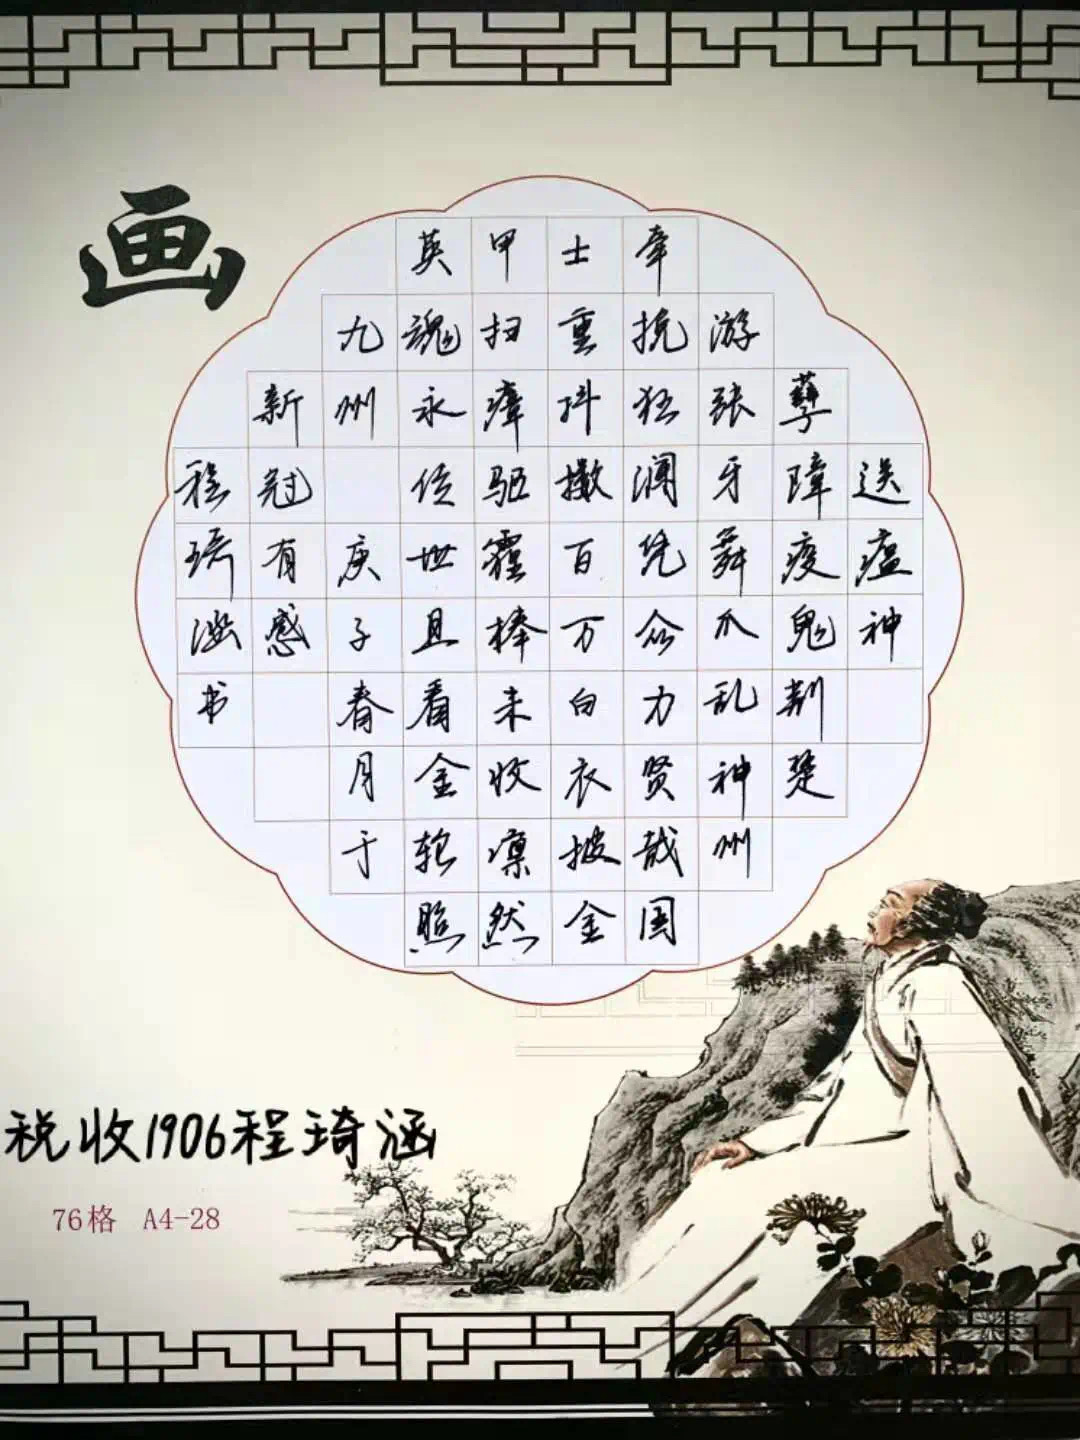 画
送瘟神
孽障疫鬼荆楚
游张牙舞爪乱神州
牵挽狂澜凭众力贤哉国
士重抖擞百万白衣披金
甲扫瘴驱霾捧未收凛然
英魂永传世且看金轮照
九州 庚子春月于
新冠有感
程琦涵书
税收1906程琦涵
76格 A4-28